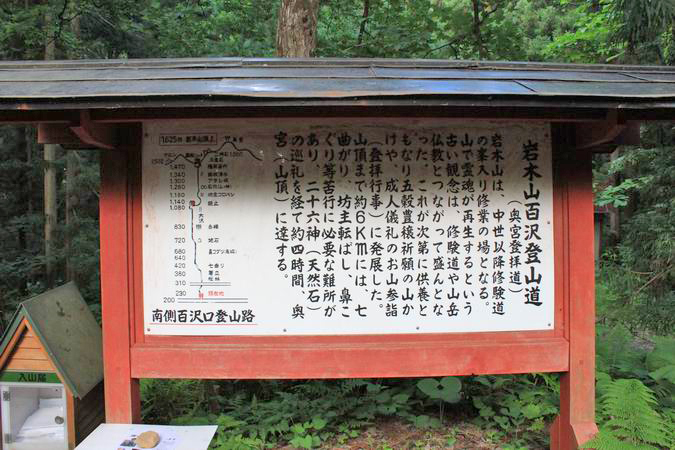 岩木山百沢登山道
(奥宮登拝道)
岩木山は、中世以降修験道
の峯入り修業の場となる。
山で霊魂が再生するという
古い観念は、修験道や山岳
仏教とつながって盛んとな
った。これが次第に供養と
もなり五穀豊穣祈願の山か
けや、成人儀礼のお山参詣
(登拝行事)に発展した。
山頂まで約6Kmには、七
曲がり、坊主転ばし、鼻こ
ぐり等苦行に必要な難所が
あり、二十六神(天然石)
の巡礼を経て約四時間、奥
宮(山頂)に達する。
1,625m 岩木山頂上
1,470
1,340
1,300
1,260
1,210
1,140
1,080
830
720
580
420
380
360
310
230
200
大沢
七曲り
現在地
南側百沢口登山路
入山届